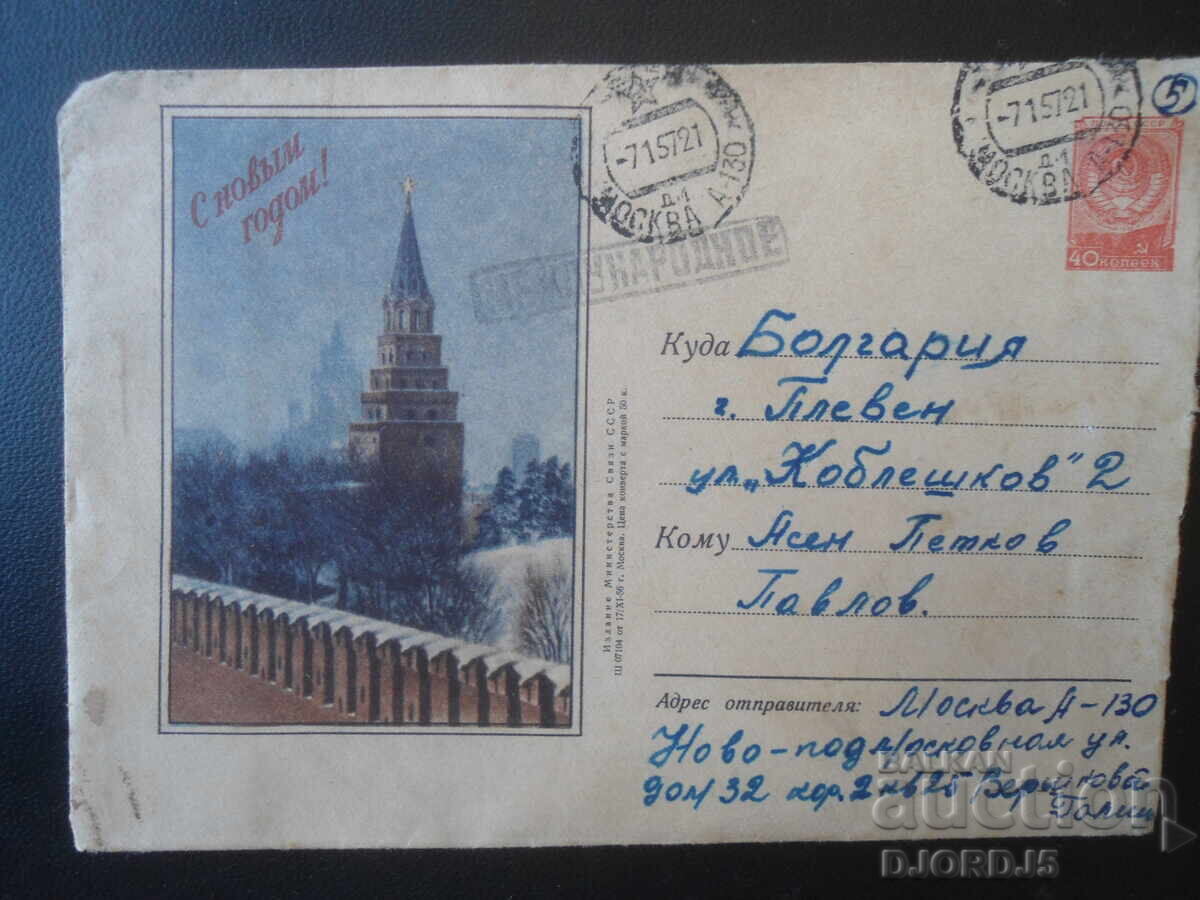 С новым
годом!
-715721
МОСКВА А-130
Д-1
-715721
МОСКВА
Д-1
5
40 копеек
МЕЖДУНАРОДНОЕ
Куда Болгария
г. Плевен
ул. „Коблешков" 2
Кому Асен Петков
Павлов.
Издание Министерства Связи СССР
Ш 07104 от 17/XI-56 г. Москва. Цена конверта с маркой 50 к.
Адрес отправителя: Москва А-130
Ново-подмосковная ул.
дом 32 кор. 2 кв 26
BALKAN
auction
DJORDJ5